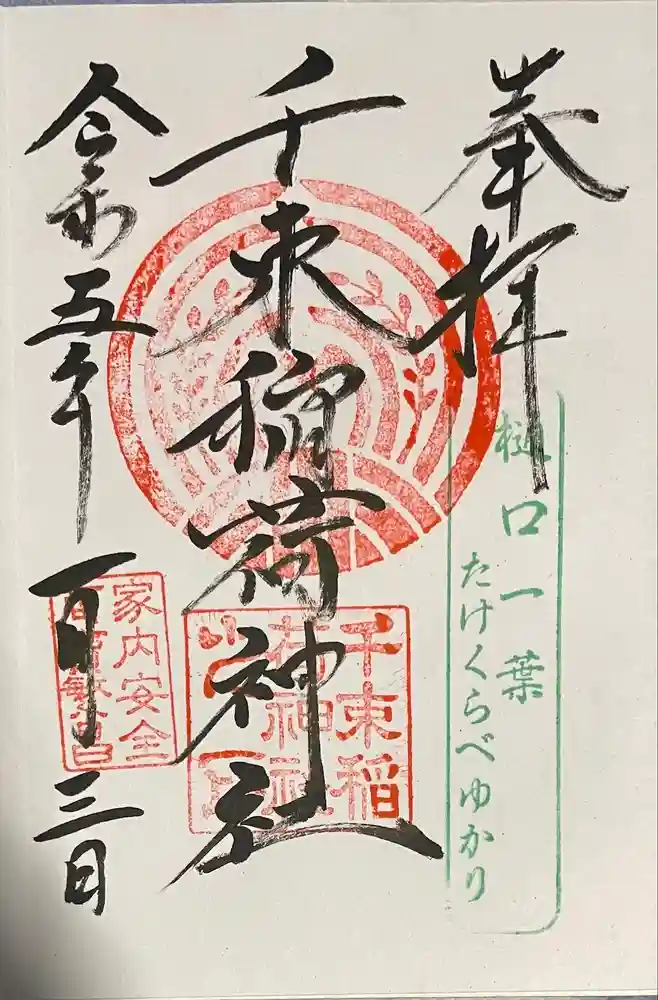 奉拝
樋口一葉
たけくらべゆかり
千束稲荷神社
千束稲
荷神社
家内安全
令和五年
一月三日